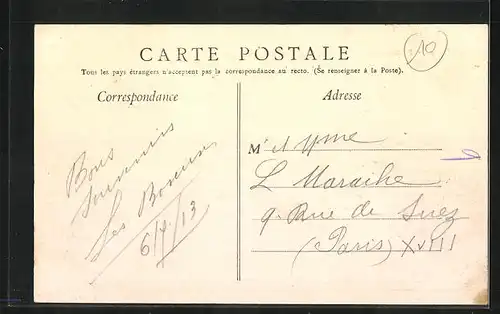 10
CARTE POSTALE
Tous les pays étrangers n'acceptent pas la correspondance au recto. (Se renseigner à la Poste).
Correspondance
Adresse
Bons
souvenirs
Les
6/4/13
M r et Mme
L Marache
9 Rue de Suez
(Paris) XVIII